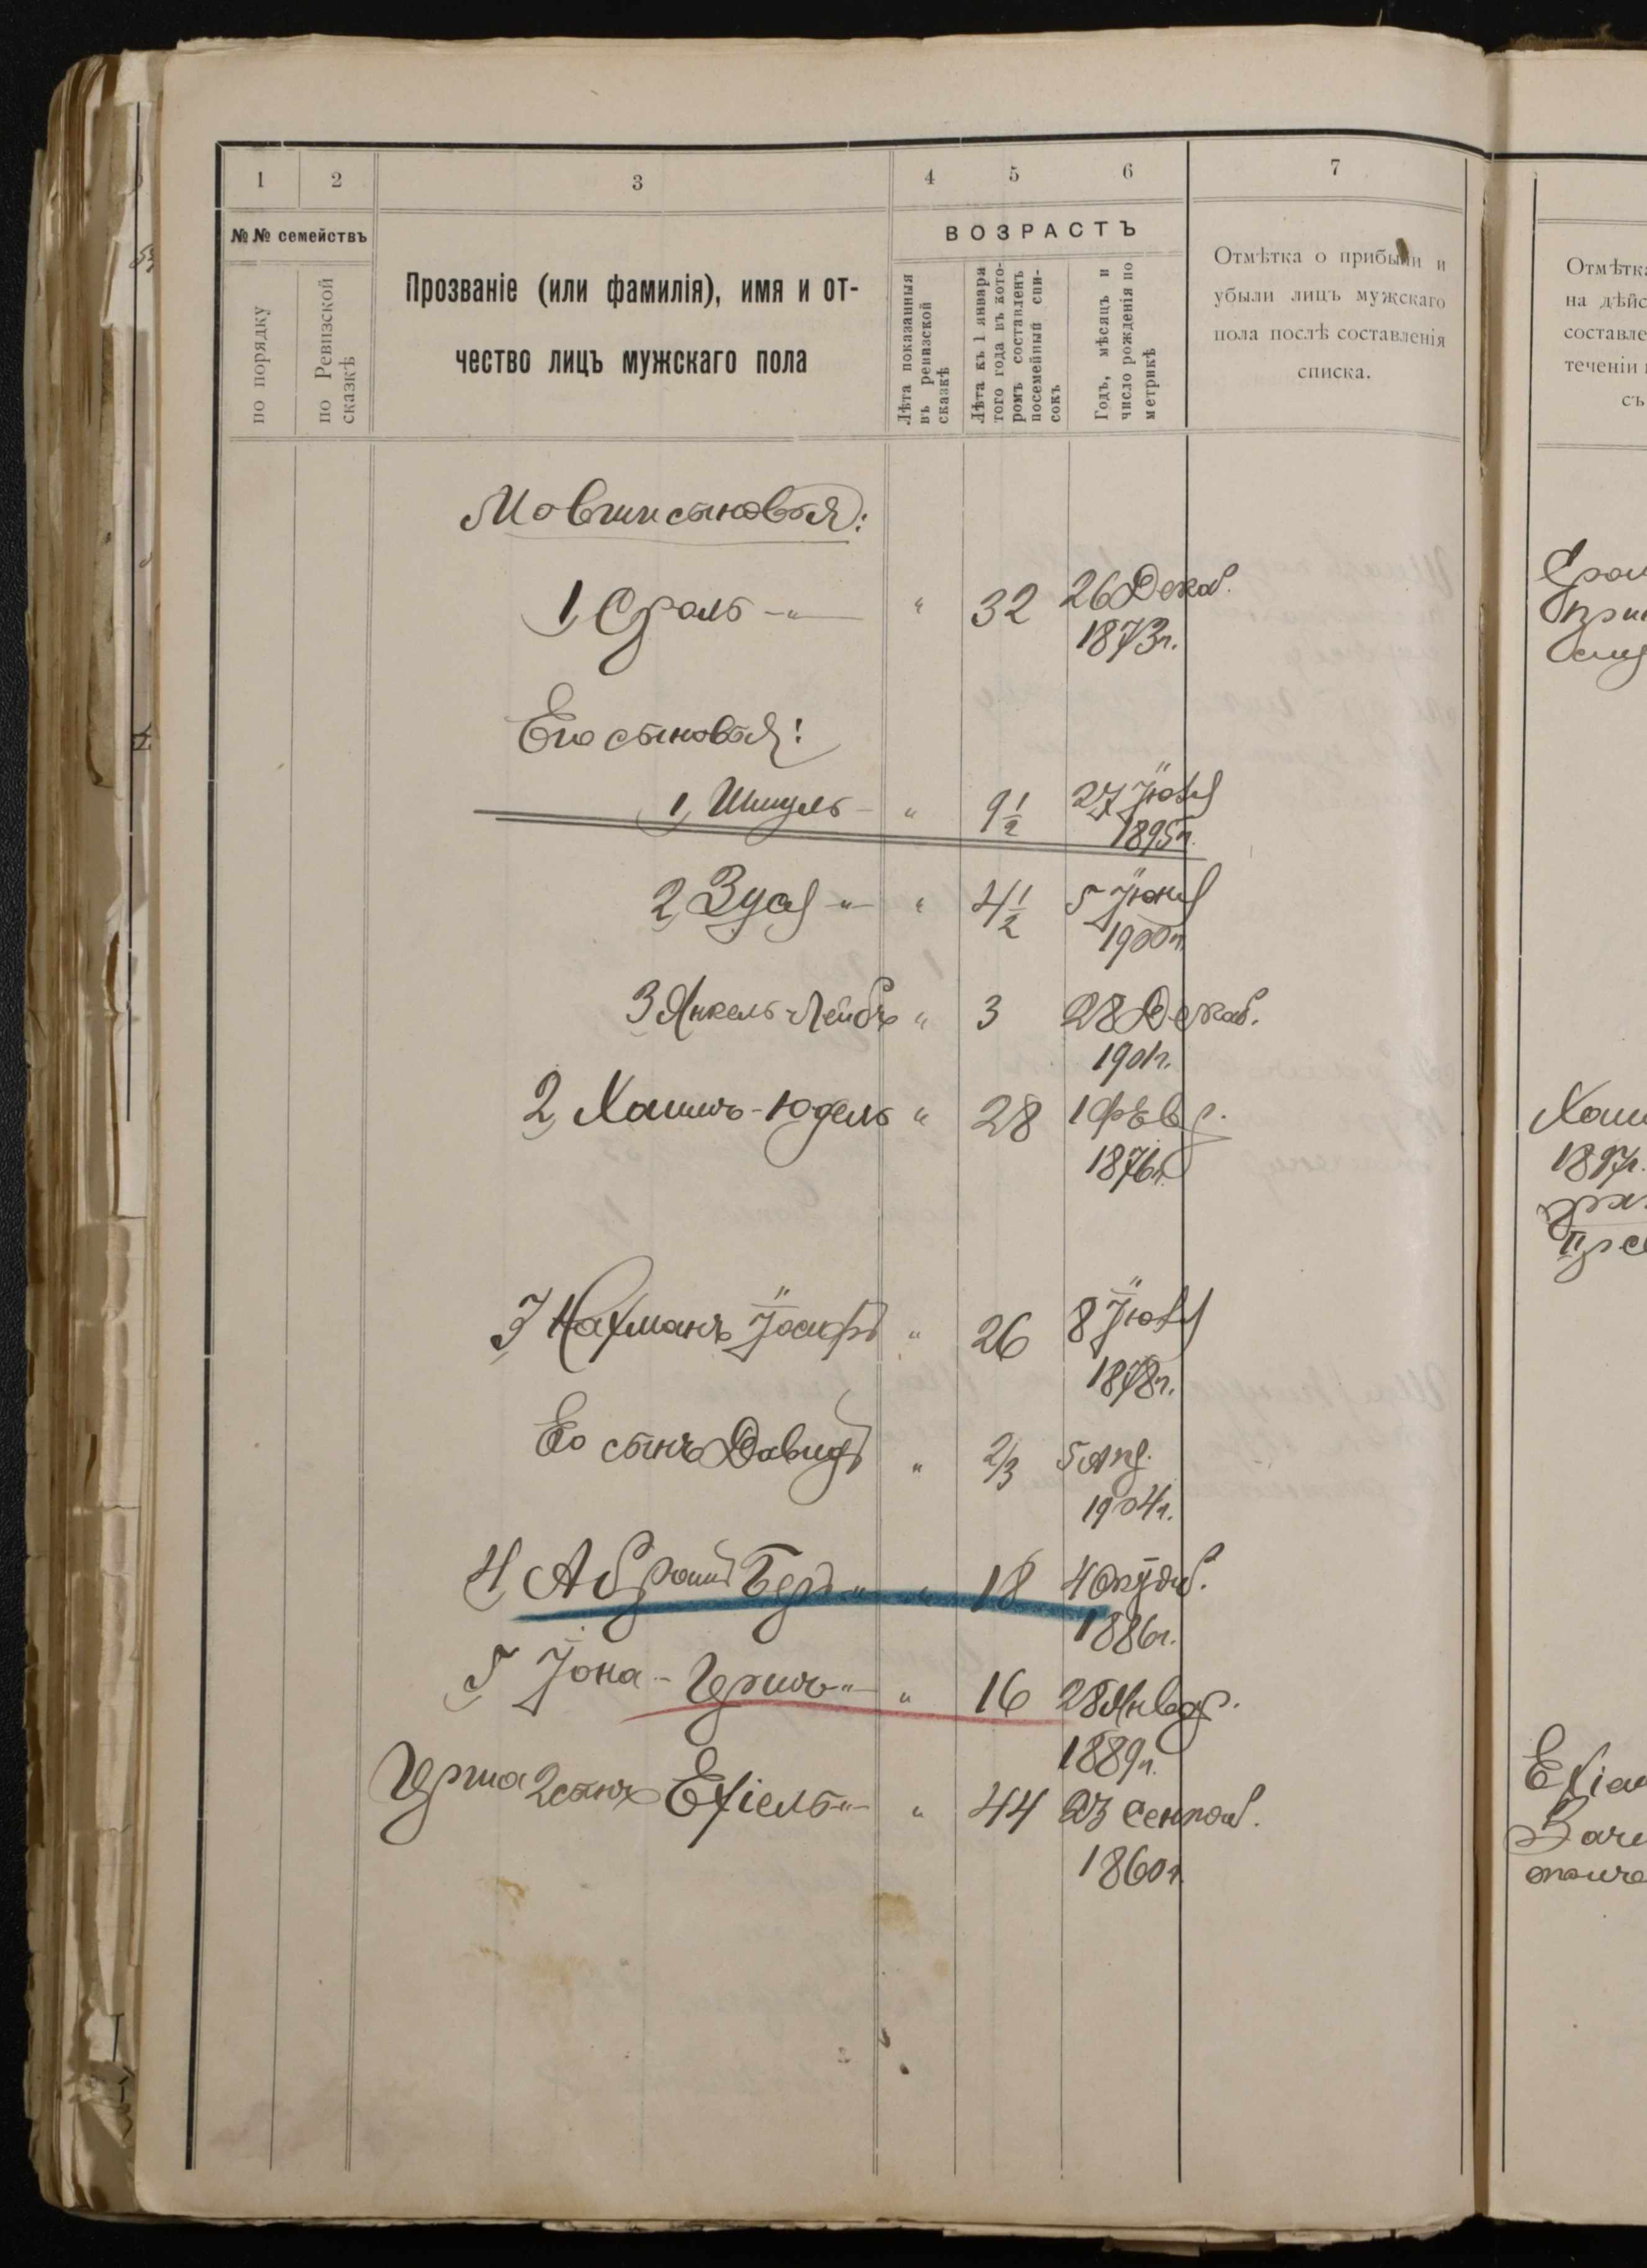 1 2 3 4 5 6 7
№ № семействъ
по порядку
по Ревизской сказкѣ
Прозваніе (или фамилія), имя и от-
чество лицъ мужскаго пола
ВОЗРАСТЪ
Лѣта показанныя
въ ревизской
сказкѣ
Лѣта къ 1 января
того года въ кото-
ромъ составленъ
посемейный спи-
сокъ
Годъ, мѣсяцъ и
число рожденія по
метрикѣ
Отмѣтка о прибыли и
убыли лицъ мужскаго
пола послѣ составленія
списка.
Отмѣтка
на дѣйс
составле
теченіи
съ
Мовши сыновья:
1, Сроль - " — " 32 26 Декаб.
1873г.
Его сыновья:
1, Шмуль - " 9 1/2 27 Іюля
1895г.
2, Зуся " " 4 1/2 5 Іюня
1900г.
3 Янкель-Лейбъ " 3 28 Декаб.
1901г.
2, Хаимъ-Юдель " 28 1 Февр.
1876г.
3 Нахманъ Іосифъ " 26 8 Іюля
1878г.
Его сынъ Давидъ " 2/3 5 Апр.
1904г.
4, Абрамъ Беръ " " 18 4 Октяб.
1886г.
5 Іона - Гершъ " " 16 28 Январ.
1889г.
Герша 2 сынъ Ехіель " " 44 23 Сентяб.
1860г.